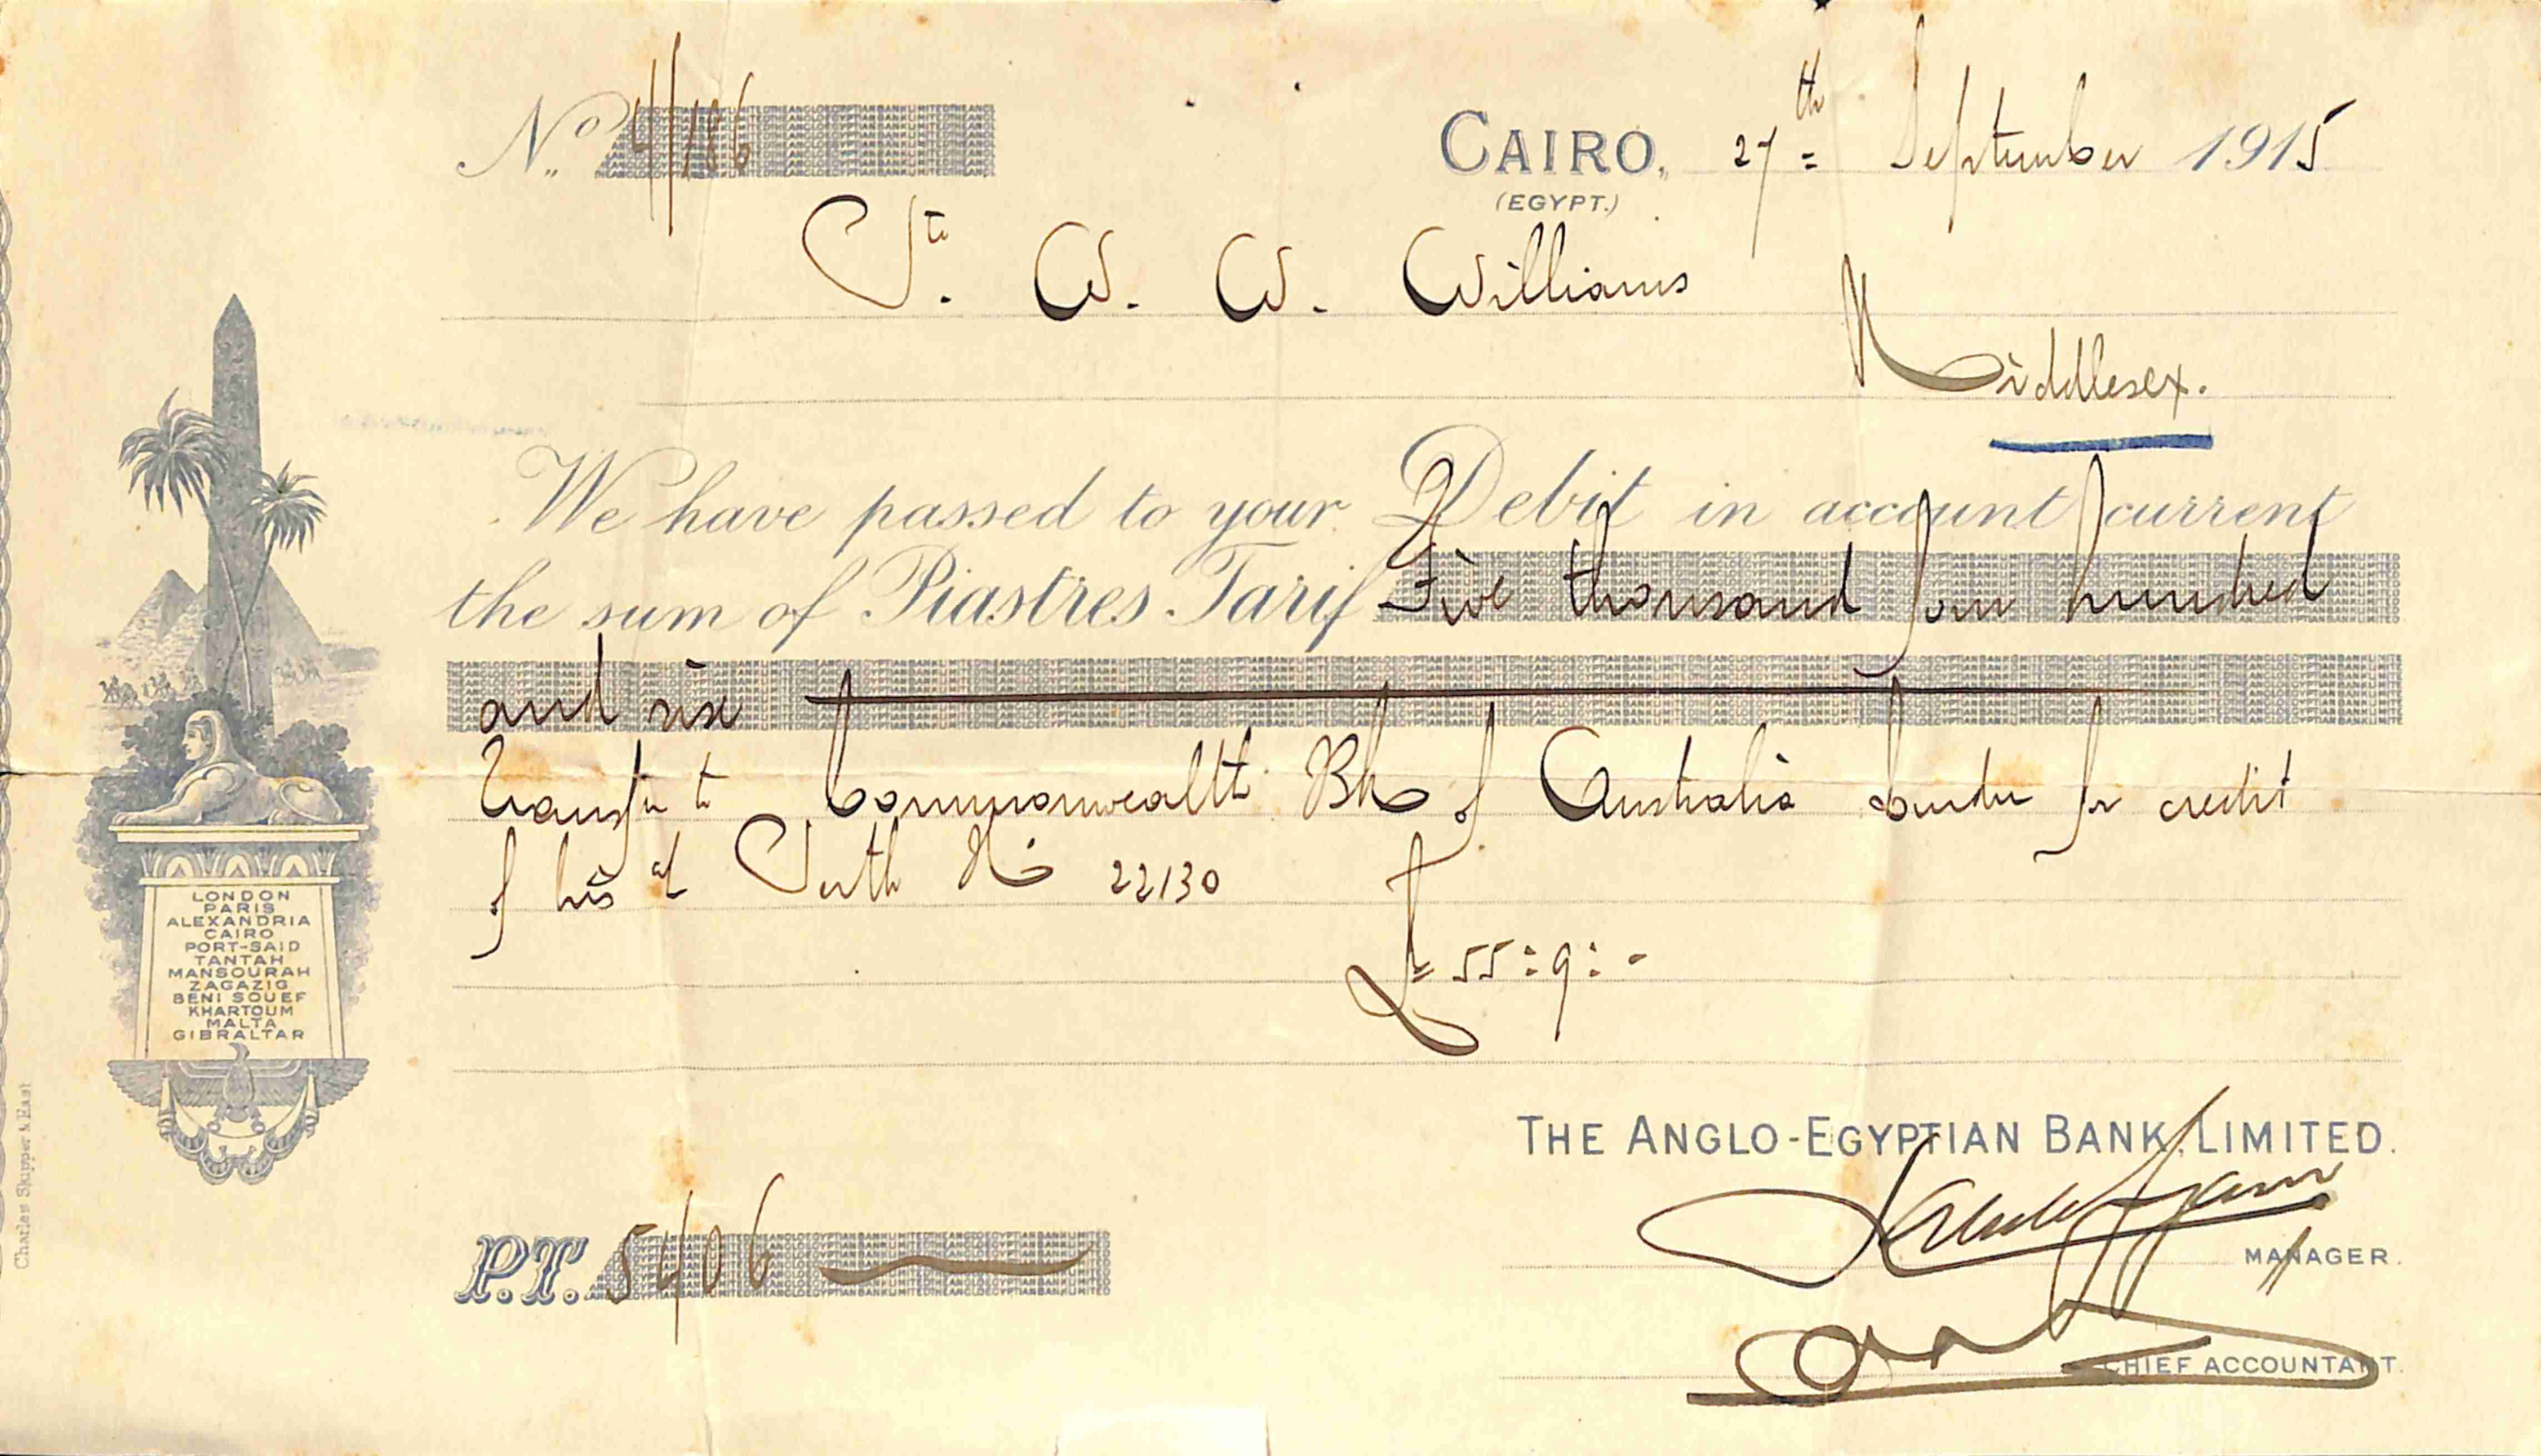 No. 4/186
CAIRO, 27th September 1915
(EGYPT.)
Pte. W. W. Williams
Middlesex.
We have passed to your Debit in account current
the sum of Piastres Tarif Five thousand four hundred
and six
Transfer to Commonwealth Bk of Australia London for credit
of his a/ Perth No 22130
£ 55:9:-
LONDON
PARIS
ALEXANDRIA
CAIRO
PORT-SAID
TANTAH
MANSOURAH
ZAGAZIG
BENI SOUEF
KHARTOUM
MALTA
GIBRALTAR
Charles Skipper & East
THE ANGLO-EGYPTIAN BANK, LIMITED.
MANAGER.
P.T. 5406
CHIEF ACCOUNTANT.